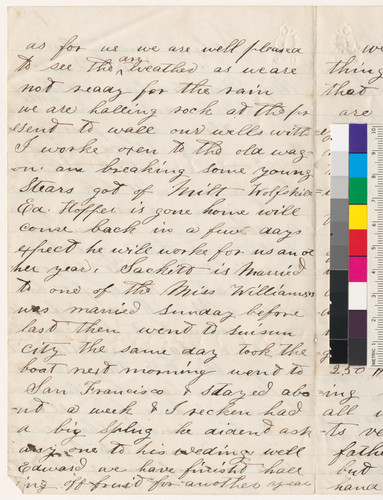 as for us we are well pleased
to see the dry weather as we are
not ready for the rain
we are halling rock at the pr
esent to wall our wells with
I worke oxen to the old wag
on. am breaking some young
Stears got of Milt Wolfskill
Ed. Hopper is gone home will
come back in a few days
expect he will worke for us anot
her year. Sackett is Married
to one of the Miss Williamses
was married sunday before
last then went to suisun
city the same day took the
boat next morning went to
San Francisco & stayed abo
ut a week & I recken had
a big Splug he dident ask
any one to his weding well
Edward we have finisht hall
ing off fruit for another year
we
thing
that
are
250
ing
all
ts ve
fathe
but
hand